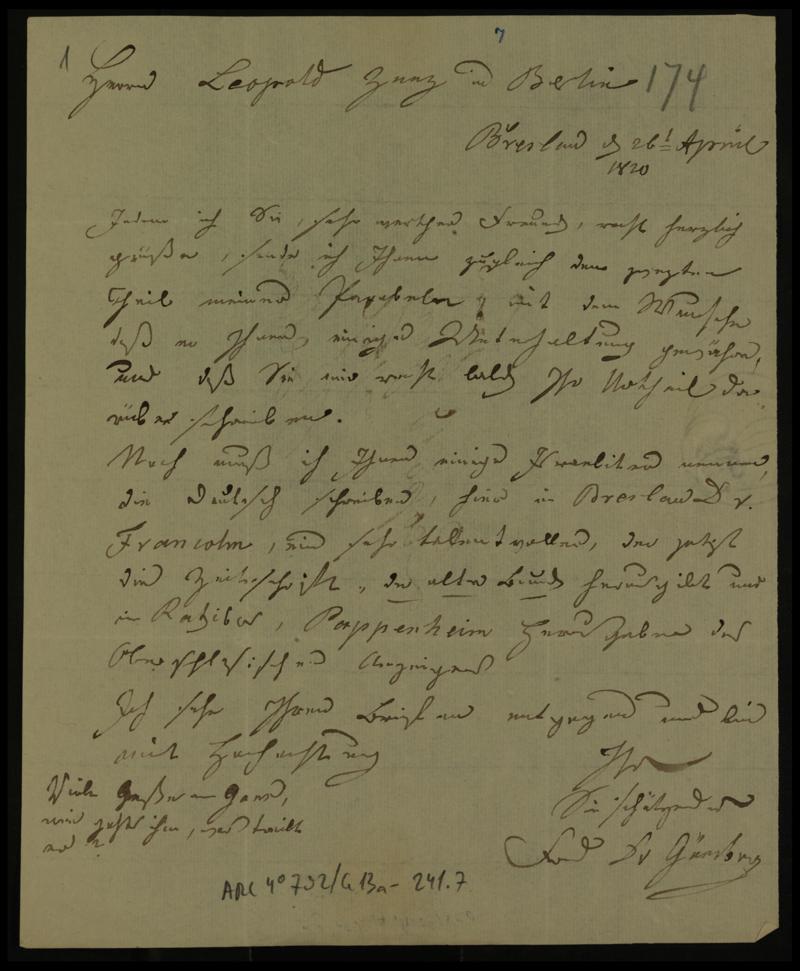 7
1
Herrn Leopold Zunz in Berlin 174
Breslau d 26t April
1820
Indem ich Sie, sehr werther Freund, recht herzlich
grüße, sende ich Ihnen zugleich den zweyten
Theil meiner Parabeln, mit dem Wunsche
daß er Ihnen einige Unterhaltung gewähre,
und daß Sie mir recht bald Ihr Urtheil da
rüber schreiben.
Noch muß ich Ihnen einige Israeliten nennen,
die deutsch schreiben, hier in Breslau Dr.
Francolm, ein sehr talentvoller, der jetzt
die Zeitschrift, der alte Bund herausgibt und
in Ratibor, Pappenheim Herausgeber des
Oberschlesischen Anzeigers
Ich sehe Ihren Briefen entgegen und bin
mit Hochachtung
Ihr
Sie schätzender
Frd Dr Günsburg
Viele Grüße an Gans,
wie geht's ihm, was treibt
er?
ARC 4° 792/G13a-241.7